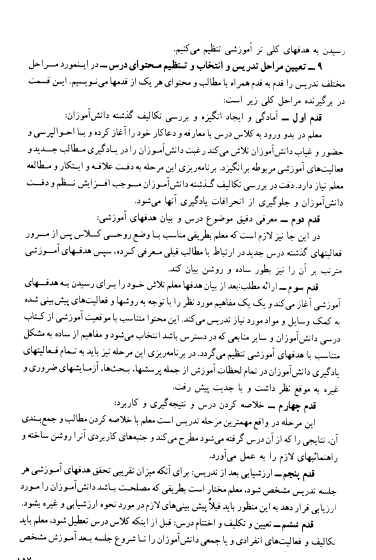 رسیدن به هدفهای کلی تر آموزشی تنظیم می‌کنیم.
۹ ــ تعیین مراحل تدریس و انتخاب و تنظیم محتوای درس ــ در اینمورد مراحل
مختلف تدریس را قدم به قدم همراه با مطالب و محتوای هر یک از قدمها می‌نویسیم. این قسمت
در برگیرنده مراحل کلی زیر است:
قدم اول ــ آمادگی و ایجاد انگیزه و بررسی تکالیف گذشته دانش‌آموزان:
معلم در بدو ورود به کلاس درس با معارفه و دعاکار خود را آغاز کرده و بـا احوالپرسی و
حضور و غیاب دانش‌آموزان تلاش می‌کند رغبت دانش‌آموزان را در یـادگیری مطالب جـدید و
فعالیت‌های آموزشی مربوطه برانگیزد. برنامه‌ریزی این مرحله به دقت علاقـه و ابتکار و مـطالعه
معلم نیاز دارد. دقت در بررسی تکالیف گـذشته دانش‌آمـوزان مـوجب افـزایش نـظم و دقـت
دانش‌آموزان و جلوگیری از انحرافات یادگیری آنها می‌شود.
قدم دوم ــ معرفی دقیق موضوع درس و بیان هدفهای آموزشی:
در این جا نیز لازم است که معلم بطریقی مناسب بـا وضع روحـی کـلاس پس از مـرور
فعالیتهای گذشته درس جدید در ارتباط با مطالب قبلی معرفی کرده، سپس هدفهای آمـوزشی
مترتب بر آن را نیز بطور ساده و روشن بیان کند.
قدم سوم ــ ارائه مطلب:بعد از بیان هدفها معلم تلاش خـود را بـرای رسیدن بـه هدفـهای
آموزشی آغاز می‌کند و یک یک مفاهیم مورد نظر را با توجه به روشها و فعالیت‌های پیش‌بینی شده
به کمک وسایل و مواد مورد نیاز تدریس می‌کند. این محتوا متناسب با موقعیت آموزشی از کتاب
درسی دانش‌آموزان و سایر منابعی که در دسترس باشد انتخاب می‌شود و مفاهیم از ساده به مشکل
متناسب با هدفهای آموزشی تنظیم می‌گردد. در برنامه‌ریزی این مرحله نیز باید به تـمام فـعالیتهای
یادگیری دانش‌آموزان در تمام لحظات آموزش از جمله پرسشها، بـحث‌ها، آزمـایشهای ضروری و
غیره به موقع نظر داشت و با جدیت پیش رفت.
قدم چهارم ــ خلاصه کردن درس و نتیجه‌گیری و کاربرد:
این مرحله در واقع مهمترین مرحله تدریس است معلم با خلاصه کردن مطالب و جمع‌بندی
آن، نتایجی را که از آن درس گرفته می‌شود مطرح می‌کند و جنبه‌های کاربردی آنرا روشن ساخته و
راهنمائیهای لازم را به عمل می‌آورد.
قدم پنجم ــ ارزشیابی بعد از تدریس: برای آنکه میزان تقریبی تحقق هدفهای آموزشی هر
جلسه تدریس مشخص شود، معلم مختار است بطریقی که مصلحت بـاشد دانش‌آمـوزان را مـورد
ارزیابی قرار دهد به این منظور باید قبلاً پیش بینی‌های لازم در مورد نحوه ارزشیابی و غیره بشود.
قدم ششم ــ تعیین و تکلیف و اختتام درس: قبل از اینکه کلاس درس تعطیل شود، معلم باید
تکلیف و فعالیت‌های انفرادی و یا جمعی دانش‌آموزان را تـا شـروع جلسه بـعد آمـوزش مشخص